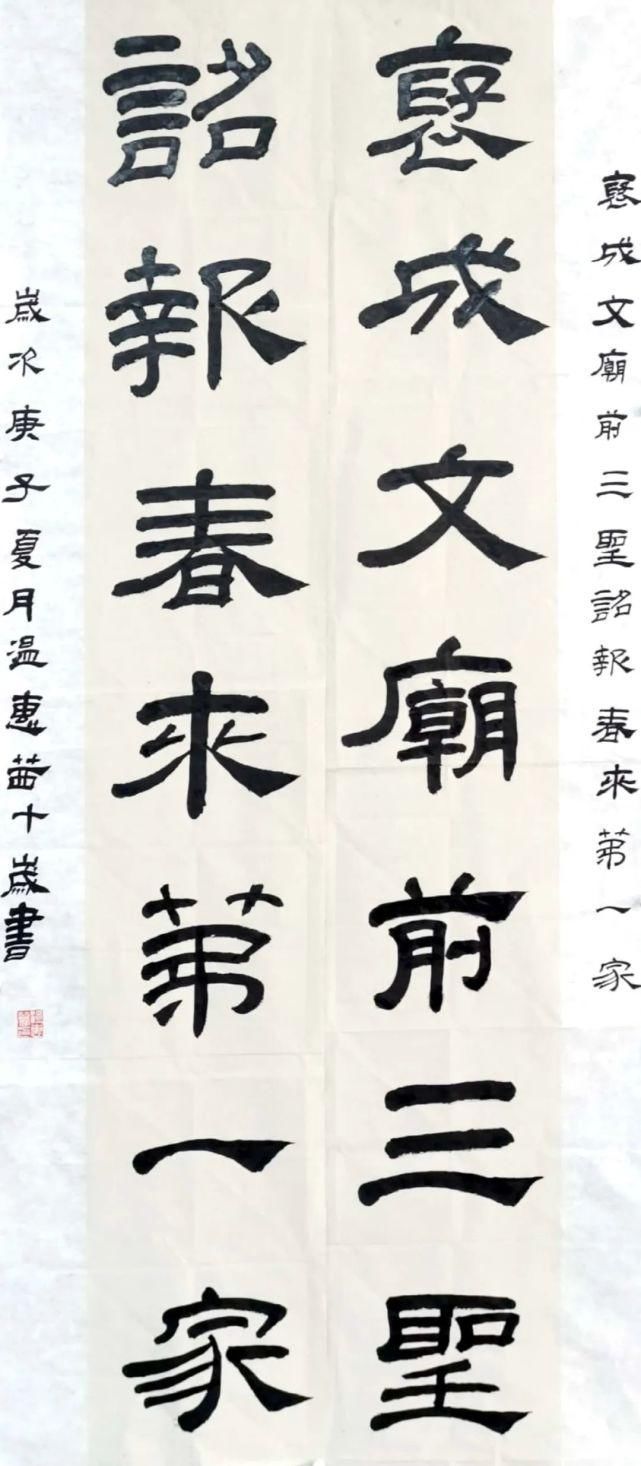 褒成文廟前三聖詔報春來第一家
褒成文廟前三聖
詔報春來第一家
歲次庚子夏月温惠茜十歲書